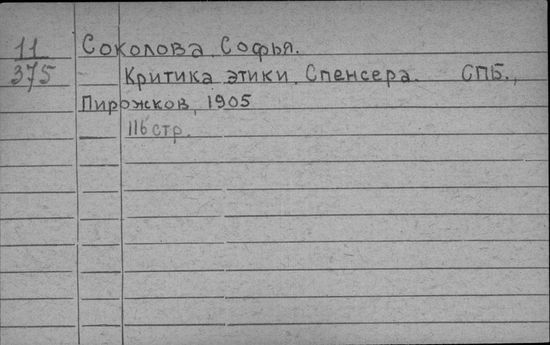 11 Соколова Софья.
375 Критика этики Спенсера. СПБ.,
Пирожков, 1905
116 стр.